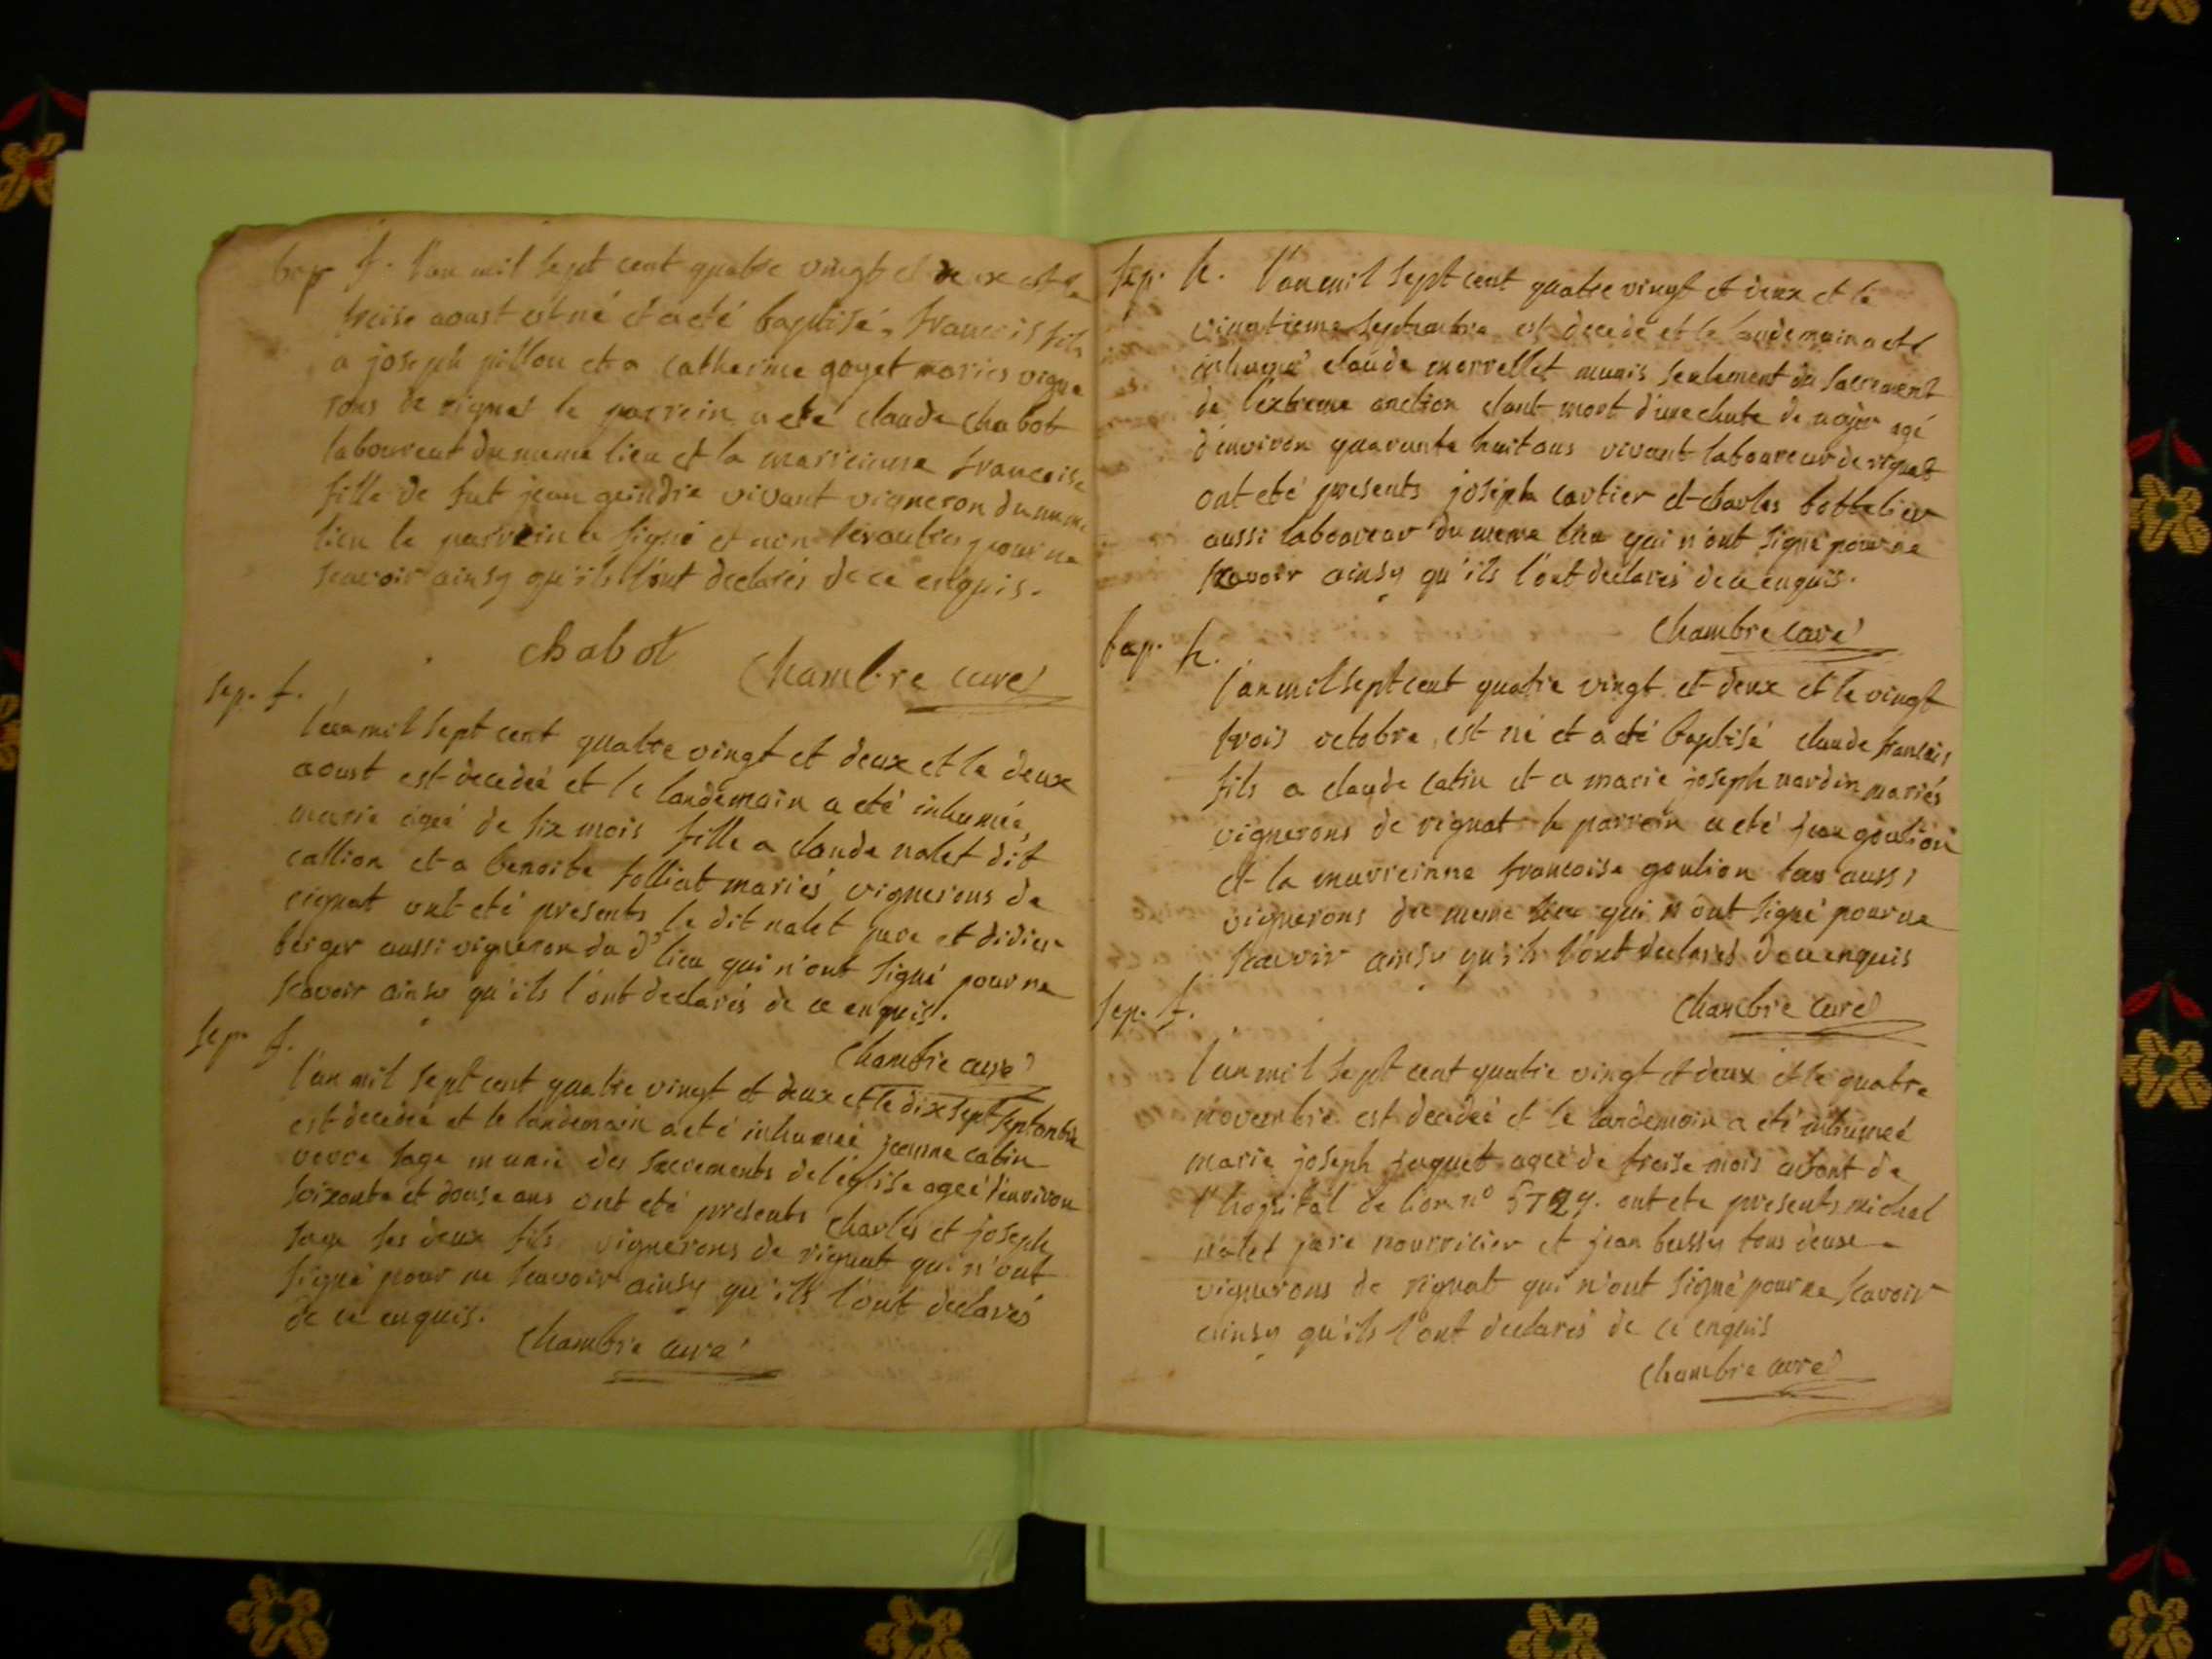 bap f. l'an mil sept cent quatre vingt et deux et le
treise aoust est né et a eté baptisé, francois fils
a joseph pillon et a catherine goyet mariés vigne
rons de rignat le parrein a eté claude chabot
laboureur du meme lieu et la marreinne francoise
fille de fut jean guindre vivant vigneron du meme
lieu le parrein a signé et non les autres pour ne
scavoir ainsy qu'ils l'ont declarés de ce enquis.
chabot
chambre curé
sep. f.
l'an mil sept cent quatre vingt et deux et le deux
aoust est decedeé et le landemain a eté inhumeé,
marie ageé de six mois fille a claude nalet dit
callion et a benoite folliat mariés vignerons de
rignat ont eté presents le dit nalet pere et didier
berger aussi vigneron du d' lieu qui n'ont signé pour ne
scavoir ainsy qu'ils l'ont declarés de ce enquis.
chambre curé
sep. f.
l'an mil sept cent quatre vingt et deux et le dix sept septembre
est decedeé et le landemain a eté inhumeé jeanne catin
veuve sage munie des sacrements de l'eglise ageé d'environ
soixante et douse ans ont eté presents charles et joseph
sage ses deux fils vignerons de rignat qui n'ont
signé pour ne scavoir ainsy qu'ils l'ont declarés
de ce enquis.
chambre curé
sep. h. l'an mil sept cent quatre vingt et deux et le
vingtieme septembre est decedé et le landemain a eté
inhumé claude morrellet munis seulement du sacrement
de l'extreme onction etant mort d'une chute de noyer agé
d'environ quarante huit ans vivant laboureur de rignat
ont eté presents joseph cartier et charles bottelier
aussi laboureur du meme lieu qui n'ont signé pour ne
scavoir ainsy qu'ils l'ont declarés de ce enquis.
chambre curé
bap. h.
l'an mil sept cent quatre vingt et deux et le vingt
trois octobre, est né et a eté baptisé claude francois
fils a claude catin et a marie joseph nardin mariés
vignerons de rignat le parrein a eté jean goulion
et la marreinne francoise goulion tous aussi
vignerons du meme lieu qui n'ont signé pour ne
scavoir ainsy qu'ils l'ont declarés de ce enquis
chambre curé
sep. f.
l'an mil sept cent quatre vingt et deux et le quatre
novembre est decedeé et le landemain a eté inhumeé
marie joseph ageé de treise mois de
l'hospital de lion n° ont eté presents michel
nalet pere nourricier et jean bussy tous deux
vignerons de rignat qui n'ont signé pour ne scavoir
ainsy qu'ils l'ont declarés de ce enquis
chambre curé